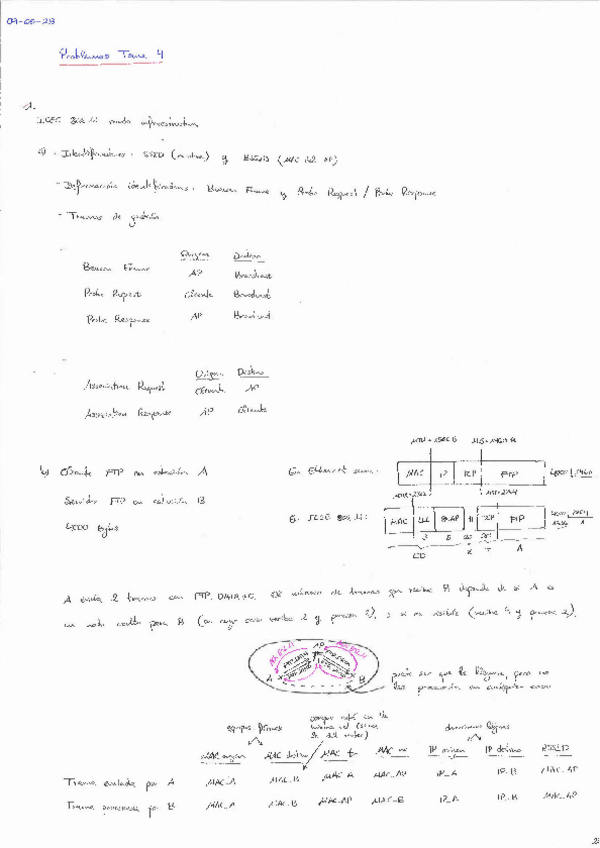 09-05-23
Problemas Tema 4
1.
IEEE 802.11 modo infraestructura
a) - Identificadores: SSID (nombre) y BSSID (MAC del AP)
- Información identificadores: Beacon Frame y Probe Request / Probe Response
- Tramas de gestión
Origen Destino
Beacon Frame AP Broadcast
Probe Request Cliente Broadcast
Probe Response AP Broadcast
Origen Destino
Association Request Cliente AP
Association Response AP Cliente
b) Cliente FTP en estación A
Servidor FTP en estación B
4000 bytes
En Ethernet
MAC IP TCP FTP
En IEEE 802.11:
MAC LLC SNAP IP TCP FTP
A envía 2 tramas con FTP. El número de tramas que recibe B depende de si A es
un nodo oculto para B (en cuyo caso recibe 2 y procesa 2), o si es visible (recibe 4 y procesa 2).
AP
A B
puede ser que le lleguen, pero no
las procesarán en cualquier caso
equipos físicos
direcciones lógicas
MAC origen MAC destino MAC tx MAC rx IP origen IP destino BSSID
Trama enviada por A MAC_A MAC_B MAC_A MAC_AP IP_A IP_B MAC_AP
Trama procesada por B MAC_A MAC_B MAC_AP MAC_B IP_A IP_B MAC_AP